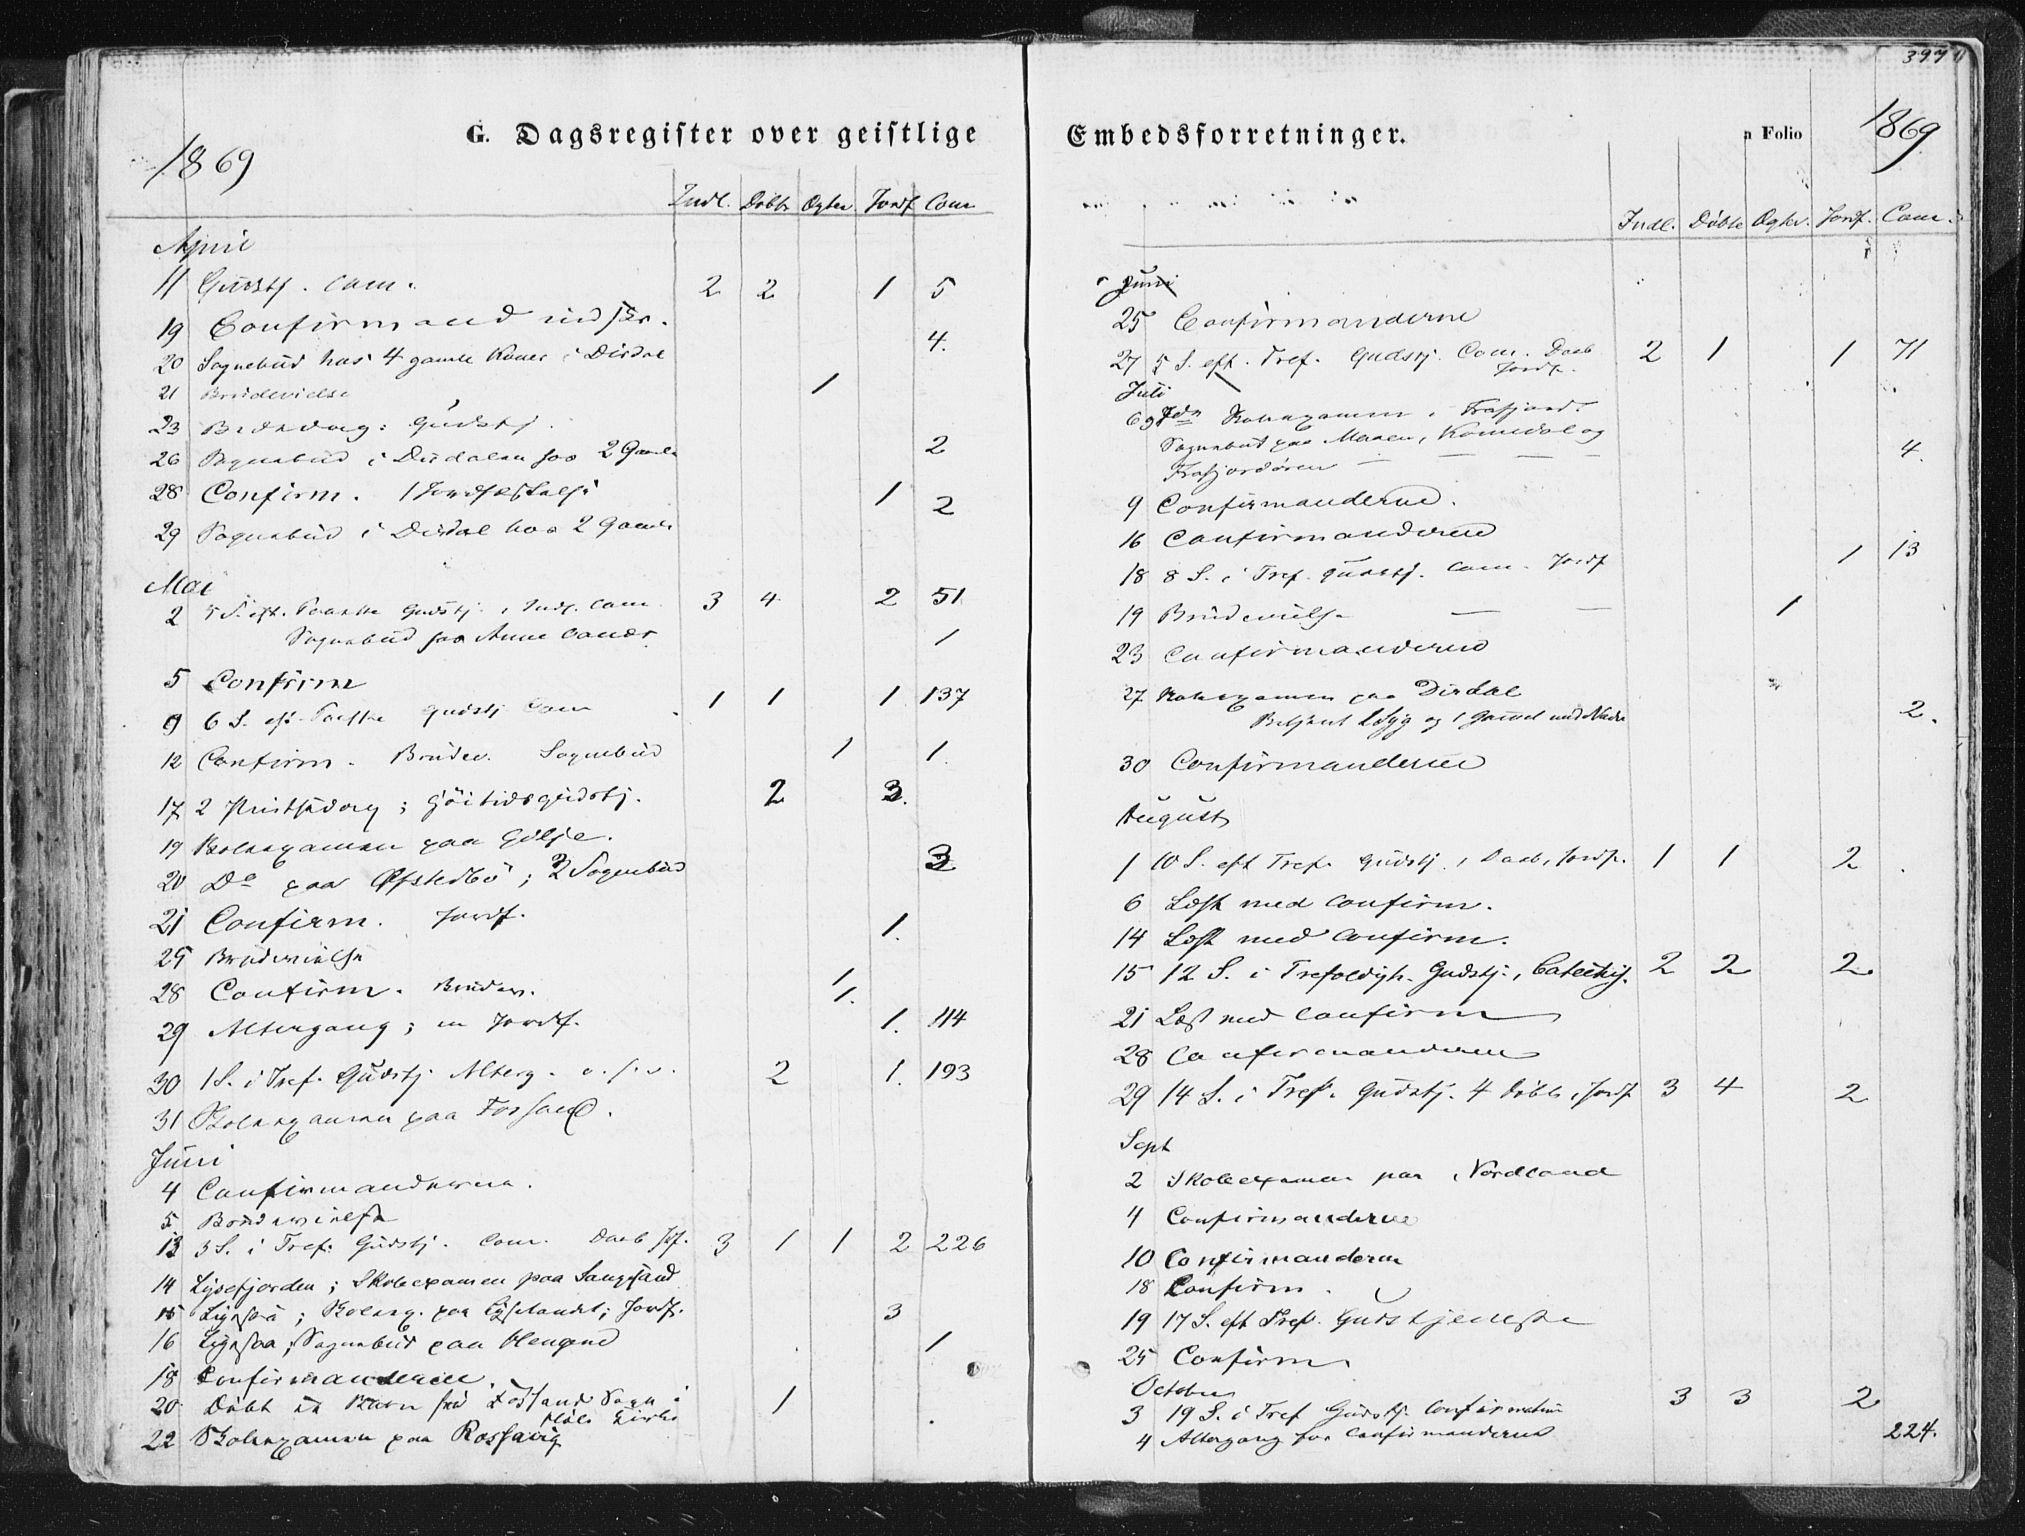 G. Dagsregister over geistlige
1869
Indl. Døbte Egtev. Jordf Com
April
11 Gudstj. Com. 2 2 1 5
19 Confirmand
20 Sognebud hos 4 gamle Koner i Dirdal 4.
21 Brudevielse 1
23 Bededag: Gudstj.
26 Sognebud i Dirdalen hos 2 Gamle 2
28 Confirm. 1 Jordfæstelse 1
29 Sognebud i Dirdal hos 2 Gamle 2
Mai
2 5 S. eft. Paaske Gudstj. , Indl. Com. 3 4 2 51
Sognebud hos Anne 1
5 Confirm
9 6 S. eft Paaske Gudstj Com 1 1 1 137
12 Confirm. Brudev. Sognebud 1 1.
17 2 Pintsedag; Høitidsgudstj. 2 3.
19 Skoleexamen paa Gilje.
20 Do paa Øfstedbø; 2 Sognebud 3
21 Confirm. Jordf. 1.
25 Brudevielse 1.
28 Confirm. Brudev. 1.
29 Altergang; en Jordf. 1. 114
30 1 S. i Tref. Gudstj. Alterg. o. s. v. 2 1. 193
31 Skoleexamen paa Forsand.
Juni
4 Confirmanderne.
5 Brudevielse
13 3 S. i Tref. Gudstj. Com. Daab Jf. 3 1 1 2 226
14 Lysefjorden; Skoleexamen paa Sangesand
15 Lysefjor; Skoleex. paa Lyselandet; Jordf. 3
16 Sognebud paa Hengne 1
18 Confirmanderne.
20 Døbt et Barn fra Fossand Sogn i Høle Kirke 1
22 Skoleexamen paa Rossavig
397
Embedsforretninger.
Folio
1869
Indl. Døbte Egtev. Jordf. Com.
Juni
25 Confirmanderne
27 5 S. eft. Tref. Gudstj. Com. Daab Jordf. 2 1 1 71
Juli
6 Skoleexamen i Frafjord.
Sognebud paa Maaen, Kommedal og 4.
Frafjordøren
9 Confirmanderne.
16 Confirmanderne
18 8 S. i Tref. Gudstj. Com. Jordf 1 13
19 Brudevielse 1
23 Confirmanderne
27 Skoleexamen paa Dirdal
Betjent 1 Syg og 1 Gammel med Nadv 2.
30 Confirmanderne
August
1 10 S. eft Tref. Gudstj. , Daab, Jordf. 1 1 2
6 Læst med Confirm.
14 Læst med Confirm.
15 12 S. i Trefoldigh. Gudstj., Catechis. 2 2 2
21 Læst med Confirm
28 Confirmanderne
29 14 S. i Tref. Gudstj. 4 Døbte, Jordf 3 4 2
Sept
2 Skoleexamen paa Nordland
4 Confirmanderne
10 Confirmanderne
18 Confirm.
19 17 S. eft Tref. Gudstjeneste
25 Confirm.
October
3 19 S. i Tref Gudstj. Confirmation 3 3 2
4 Altergang for Confirmanderne 224.